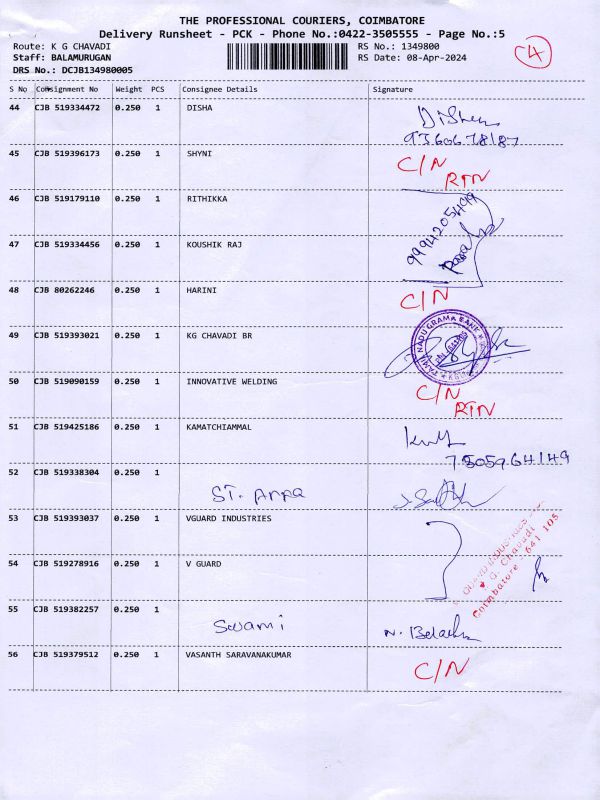 THE PROFESSIONAL COURIERS, COIMBATORE
Delivery Runsheet - PCK - Phone No.:0422-3505555 - Page No.:5
Route: K G CHAVADI RS No.: 1349800
Staff: BALAMURUGAN RS Date: 08-Apr-2024
DRS No.: DCJB134980005
C4
S No Consignment No Weight PCS Consignee Details Signature
44 CJB 519334472 0.250 1 DISHA
9360678187
45 CJB 519396173 0.250 1 SHYNI C/N
RTN
46 CJB 519179110 0.250 1 RITHIKKA
9994205499
47 CJB 519334456 0.250 1 KOUSHIK RAJ
48 CJB 80262246 0.250 1 HARINI C/N
49 CJB 519393021 0.250 1 KG CHAVADI BR
TAMIL NADU GRAMA BANK
50 CJB 519090159 0.250 1 INNOVATIVE WELDING C/N
RTN
51 CJB 519425186 0.250 1 KAMATCHIAMMAL
7505964149
52 CJB 519338304 0.250 1
ST. Anna
53 CJB 519393037 0.250 1 VGUARD INDUSTRIES
GUARD INDUSTRIES
K. G. Chavadi
Coimbatore - 641 105
54 CJB 519278916 0.250 1 V GUARD
55 CJB 519382257 0.250 1
Swami
56 CJB 519379512 0.250 1 VASANTH SARAVANAKUMAR C/N